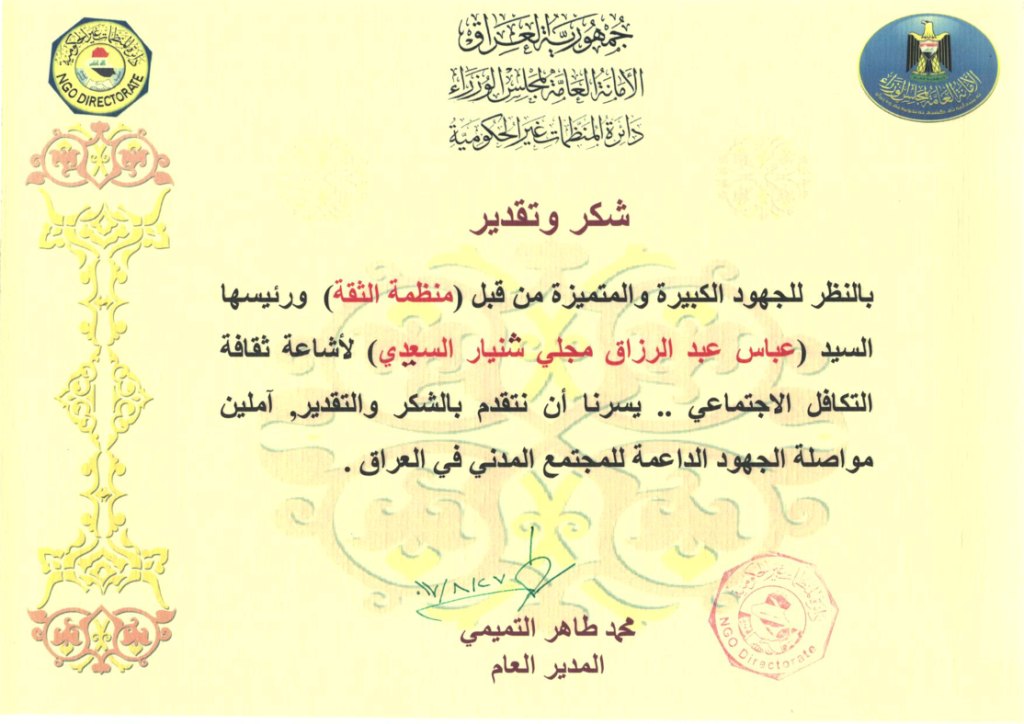 جمهورية العراق
الأمانة العامة لمجلس الوزراء
دائرة المنظمات غير الحكومية
دائرة المنظمات غير الحكومية
NGO DIRECTORATE
الأمانة العامة لمجلس الوزراء
شكر وتقدير
بالنظر للجهود الكبيرة والمتميزة من قبل (منظمة الثقة) ورئيسها
السيد (عباس عبد الرزاق مجلي شنيار السعدي) لأشاعة ثقافة
التكافل الاجتماعي .. يسرنا أن نتقدم بالشكر والتقدير, آملين
مواصلة الجهود الداعمة للمجتمع المدني في العراق .
محمد طاهر التميمي
المدير العام
دائرة المنظمات غير الحكومية
NGO Directorate